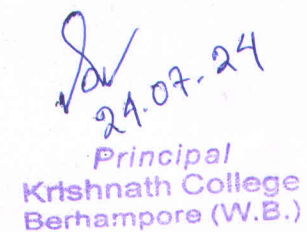 24.07.24
Principal
Krishnath College
Berhampore (W.B.)